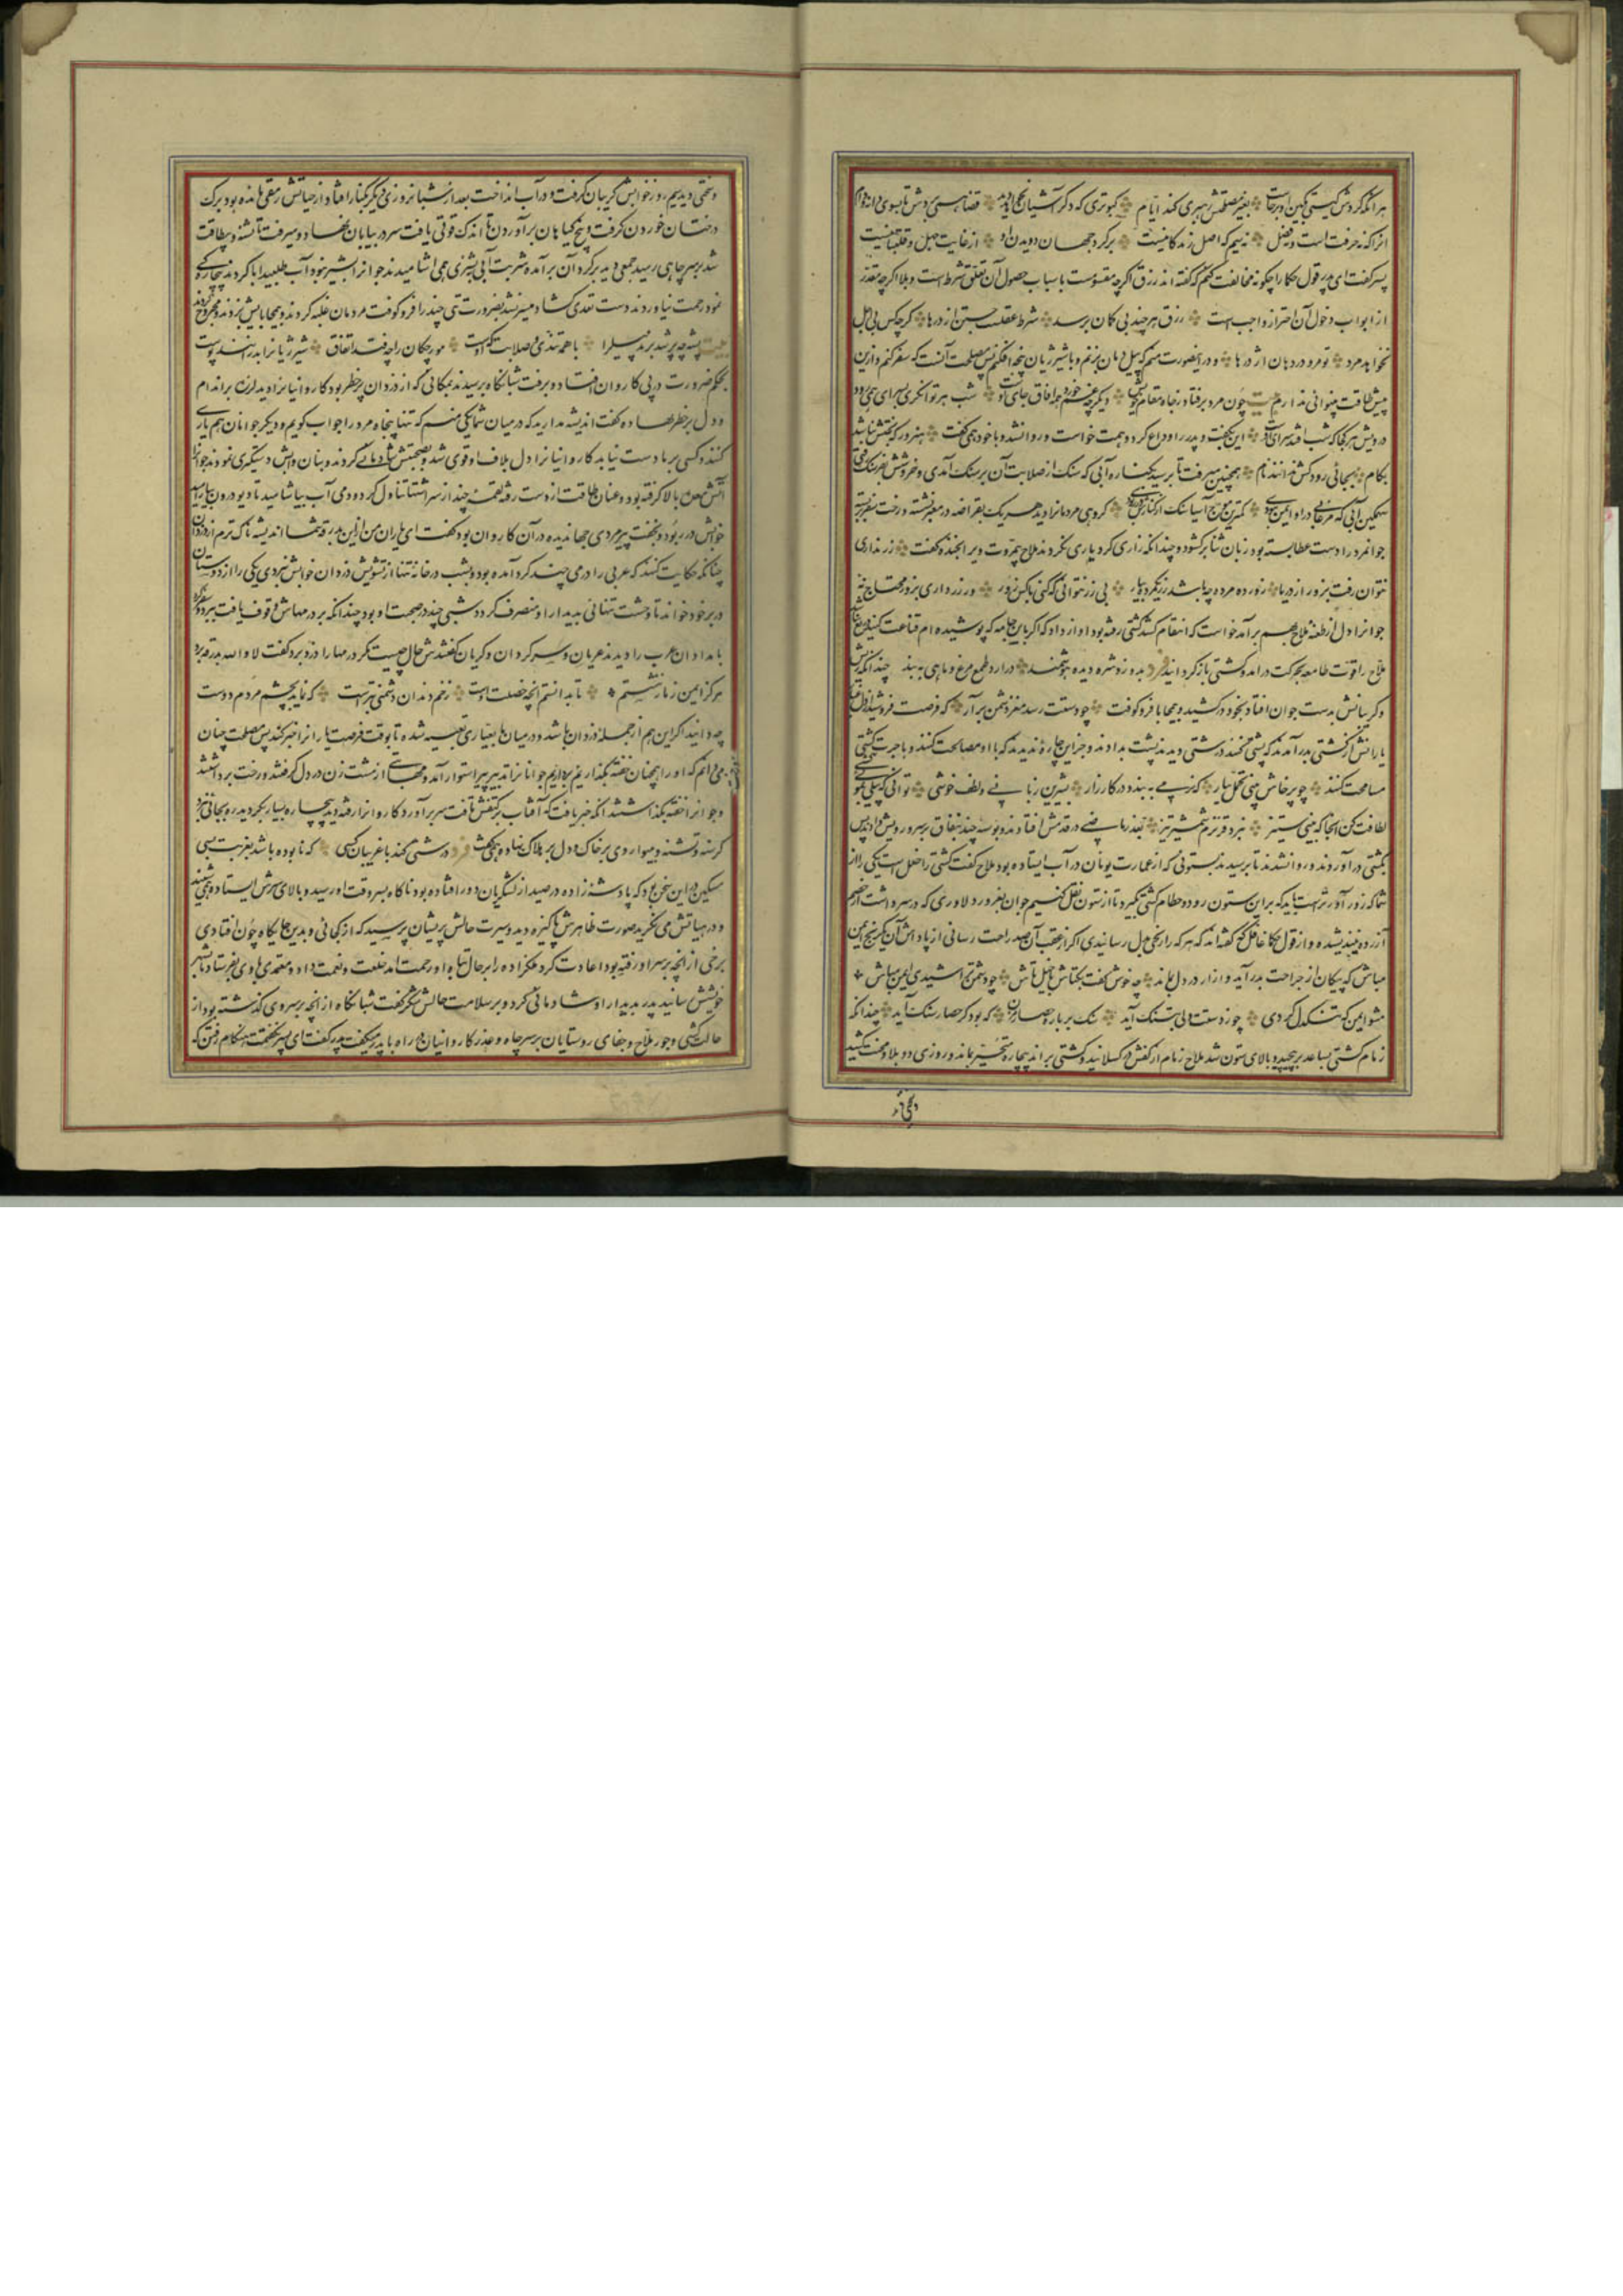 هر آنکه گردش گیتی بکین او برخاست بغیر مصلحتش رهبری کند ایام کبوتری که دگر آشیان نخواهد دید قضا همی بردش تا بسوی دانه و دام
پسر گفت ای پدر قول حکما را چگونه مخالفت کنم که گفته‌اند رزق اگرچه مقسومست باسباب حصول آن تعلق شرط است و بلا اگرچه مقدر
از ابواب دخول آن احتراز واجب است رزق هر چند بی گمان برسد شرط عقلست جستن از درها گرچه کس بی اجل
نخواهد مرد تو مرو در دهان اژدرها و درین صورت منم که با پیل دمان بزنم و با شیر ژیان پنجه افکنم پس مصلحت آنست که سفر کنم و ازین
بیش طاقت بینوائی ندارم چون مرد برفتاد ز جا و مقام خویش دیگر چه غم خورد همه آفاق جای اوست شب هر توانگری بسرای همی رود
درویش هر کجا که شب آمد سرای اوست این بگفت و پدر را وداع کرد و همت خواست و روانشد و با خود همی گفت هنرور که بختش نباشد
بکام بجائی رود کش ندانند نام همچنین میرفت تا برسید بکناره آبی که سنگ از صلابت آن بر سنگ آمدی و خروشش بفرسنگ رفتی
سهمگین آبی که مرغابی در او ایمن نبودی کمترین موج آسیا سنگ از کنارش در ربودی گروهی مردمانرا دید هر یک بقراضه در معبر نشسته و رخت سفر بسته
جوانمرد را دست عطا بسته بود زبان ثنا بر گشود و چندانکه زاری کرد یاری نکردند ملاح بی مروت ویرا بخنده گفت زر نداری
نتوان رفت بزور از دریا زور ده مرده چه باشد زر یکمرده بیار بی زر نتوانی که کنی با کس زور ور زر داری بزور محتاج نه
جوانرا دل از طعنه ملاح بهم برآمد خواست که انتقام کشد کشتی رفته بود آواز داد که اگر باین جامه که پوشیده‌ام قناعت کنی دریغ نباشد
ملاح را قوت طامعه بحرکت درآمد و کشتی باز گردانید بدوزد شره دیده هوشمند درآرد طمع مرغ و ماهی به بند چندانکه ریش
و گریبانش بدست جوان افتاد بخود در کشید و بیمحابا فرو کوفت
یارانش از کشتی بدر آمدند که پشتی کنند درشتی دیدند پشت بدادند و جز این چاره ندیدند که با او مصالحت کنند و باجرت کشتی
مسامحت کنند چو پرخاش بینی تحمل بیار که نرمی به بندد در کارزار بشیرین زبانی و لطف و خوشی توانی که پیلی بموئی کشی
لطافت کن آنجا که بینی ستیز نبرد قز نرم شمشیر تیز بعذر ماضی در قدمش افتادند و بوسه چند بنفاق بر سر و رویش دادند پس
بکشتی در آوردند و روانشدند تا برسیدند بستونی که از عمارت یونان در آب ایستاده بود ملاح گفت کشتی را خلل است یکی را از
شما که زور آورتر است باید که بر این ستون رود و خطام کشتی بگیرد تا از ستون نقل کنیم جوان بغرور دلاوری که در سر داشت از خصم
آزرده نیندیشید و از قول حکما غافل که گفته‌اند که هر که را رنجی بدل رسانیدی اگر از عقب آن صد راحت رسانی از پاداش آن یک رنج ایمن
مباش که پیکان از جراحت بدر آید و آزار در دل بماند چه خوش گفت بکتاش با خیل تاش چو دشمن خراشیدی ایمن مباش
مشو ایمن که تنگدل گردی چون ز دستت دلی بتنگ آید سنگ بر باره حصار مزن که بود کز حصار سنگ آید چندانکه
زمام کشتی بساعد برپیچید و بالای ستون شد ملاح زمام از کفش در گسلانید و کشتی براند بیچاره متحیر بماند و روزی دو بلا و محنت کشید
و سختی دید سیم روز خوابش گریبان گرفت و در آب انداخت بعد از شبانروزی دیگر بکنار افتاد و از حیاتش رمقی مانده بود برگ
درختان خوردن گرفت و بیخ گیاهان برآوردن تا اندک قوتی یافت سر در بیابان نهاد و میرفت تا تشنه و بیطاقت
شد بر سر چاهی رسید جمعی دید بر گرد آن برآمده شربت آبی به پشیزی همی آشامیدند جوانرا پشیز نبود آب طلبید ابا کردند بیچارگی
نمود رحمت نیاوردند دست تعدی گشاد میسر نشد بضرورت تنی چند را فرو کوفت مردمان غلبه کردند و بیمحابایش بزدند و مجروح کردند
پشه چو پر شد بزند پیل را با همه تندی و صلابت که اوست مورچگان را چو فتد اتفاق شیر ژیانرا بدرانند پوست
بحکم ضرورت در پی کاروان افتاد و برفت شبانگاه برسیدند بمکانی که از دزدان پرخطر بود کاروانیانرا دید لرزه بر اندام
و دل بر خطر نهاده گفت اندیشه مدارید که در میان شما یکی منم که تنها پنجاه مرد را جواب گویم و دیگر جوانان هم یاری
کنند و کسی بر ما دست نیابد کاروانیانرا دل بلاف او قوی شد و بصحبتش شادمانی کردند و بنان و آبش دستگیری نمودند جوانرا
آتش معده بالا گرفته بود و عنان طاقت از دست رفته لقمه چند از سر اشتها تناول کرد و دمی آب بیاشامید تا دیو درون بیارامید
خوابش در ربود و بخفت پیرمردی جهاندیده در آن کاروان بود گفت ای یاران من ازین بدرقه شما اندیشه ناکترم از دزدان
چنانکه حکایت کنند که عربی را درمی چند گرد آمده بود و شب در خانه تنها از تشویش دزدان خوابش نبردی یکی را از دوستان
در بر خود خواند تا وحشت تنهائی بدیدار او منصرف گردد شبی چند در صحبت او بود چندانکه بر درمهاش وقوف یافت ببرد و سفر کرد
بامدادان عرب را دیدند عریان و سرگردان و گریان گفتندش حال چیست مگر درمها را دزد برد گفت لا والله بدرقه برد
هرگز ایمن ز مار ننشستم تا بدانستم آنچه خصلت اوست زخم دندان دشمنی بتر است که نماید بچشم مردم دوست
چه دانید اگر این هم از جمله دزدان باشد و در میان ما بعیاری تعبیه شده تا بوقت فرصت یارانرا خبر کند پس مصلحت چنان
می دانم که او را همچنان خفته بگذاریم و برانیم جوانانرا تدبیر پیر استوار آمد و مهابتی از مشت زن در دل گرفتند و رخت برداشتند
و جوانرا خفته بگذاشتند آنگه خبر یافت که آفتاب بر کتفش تافت سر برآورد کاروانرا رفته دید بیچاره بسیار بگردید ره بجائی نبرد
گرسنه و تشنه و بینوا روی بر خاک و دل بر هلاک نهاد و میگفت فرد درشتی کند با غریبان کسی که نابوده باشد بغربت بسی
مسکین در این سخن بود که پادشه زاده در صید از لشکریان دور افتاده بود ناگاه بسر وقت او رسید و بالای سرش ایستاده می شنید
و در هیأتش می نگرید صورت ظاهرش پاکیزه دید و سیرت حالش پریشان پرسید که از کجائی و بدین جایگاه چون افتادی
برخی از آنچه بر سر او رفته بود اعادت کرد ملکزاده را بر حال تباه او رحمت آمد خلعت و نعمت داد و معتمدی با وی بفرستاد تا بشهر
خویشش رسانید پدر بدیدار او شادمانی کرد و بر سلامت حالش شکر گفت شبانگاه از آنچه بر سر وی گذشته بود از
حالت کشتی و جور ملاح و جفای روستایان بر سر چاه و عذر کاروانیان در راه با پدر میگفت پدر گفت ای پسر نگفتمت هنگام رفتن که